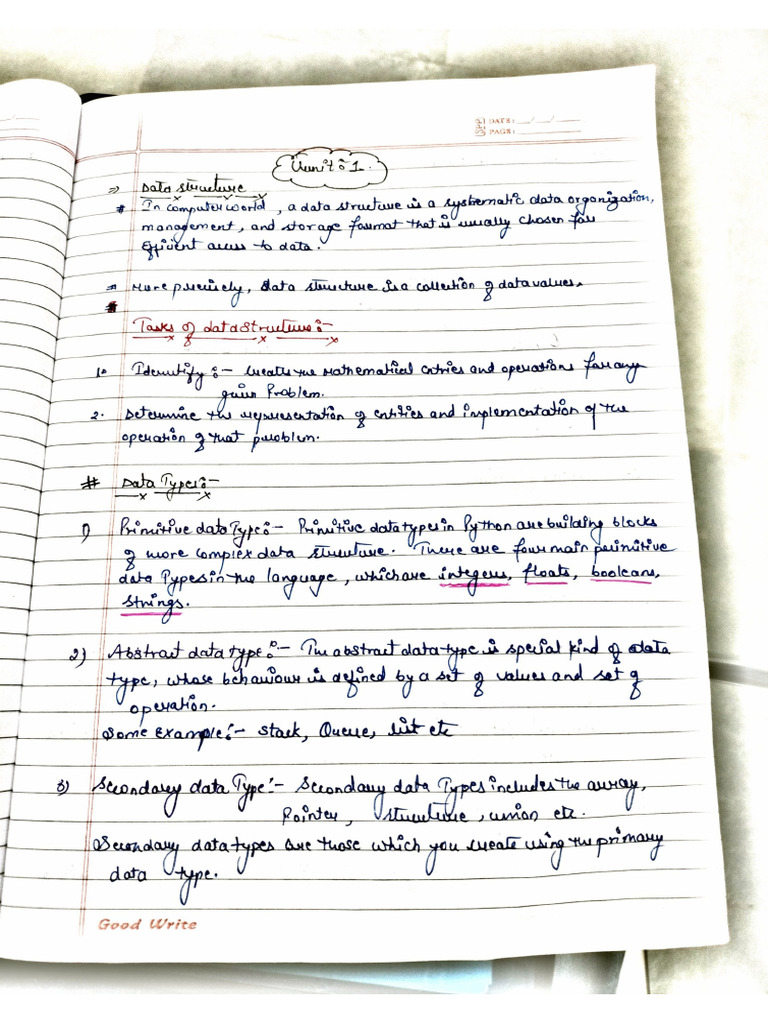 DATE: __/__/__
PAGE:
Unit:1.
⇒ Data structure
# In computer world, a data structure is a systematic data organization,
management, and storage format that is usually chosen for
Efficient access to data.
⇒ More precisely, data structure is a collection of data values.
Tasks of data structure:-
1. Identify:- Creates the Mathematical entries and operations for any
given Problem.
2. Determine the representation of entities and implementation of the
operation of that problem.
# Data Types:-
1) Primitive data Type:- Primitive data types in Python are building blocks
of more complex data structure. There are four main primitive
data Types in the language, which are integers, floats, booleans,
strings.
2) Abstract data type:- The abstract data type is special kind of data
type, whose behaviour is defined by a set of values and set of
operation.
Some Example:- Stack, Queue, list etc
3) Secondary data Type:- Secondary data Types includes the array,
Pointer, structure, union etc.
Secondary data types are those which you create using the primary
data type.
Good Write